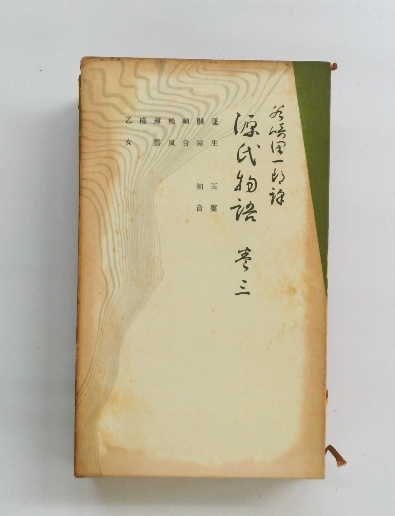 谷崎潤一郎訳
源氏物語 巻三
蓬生
關屋
繪合
松風
薄雲
槿
乙女
玉鬘
初音